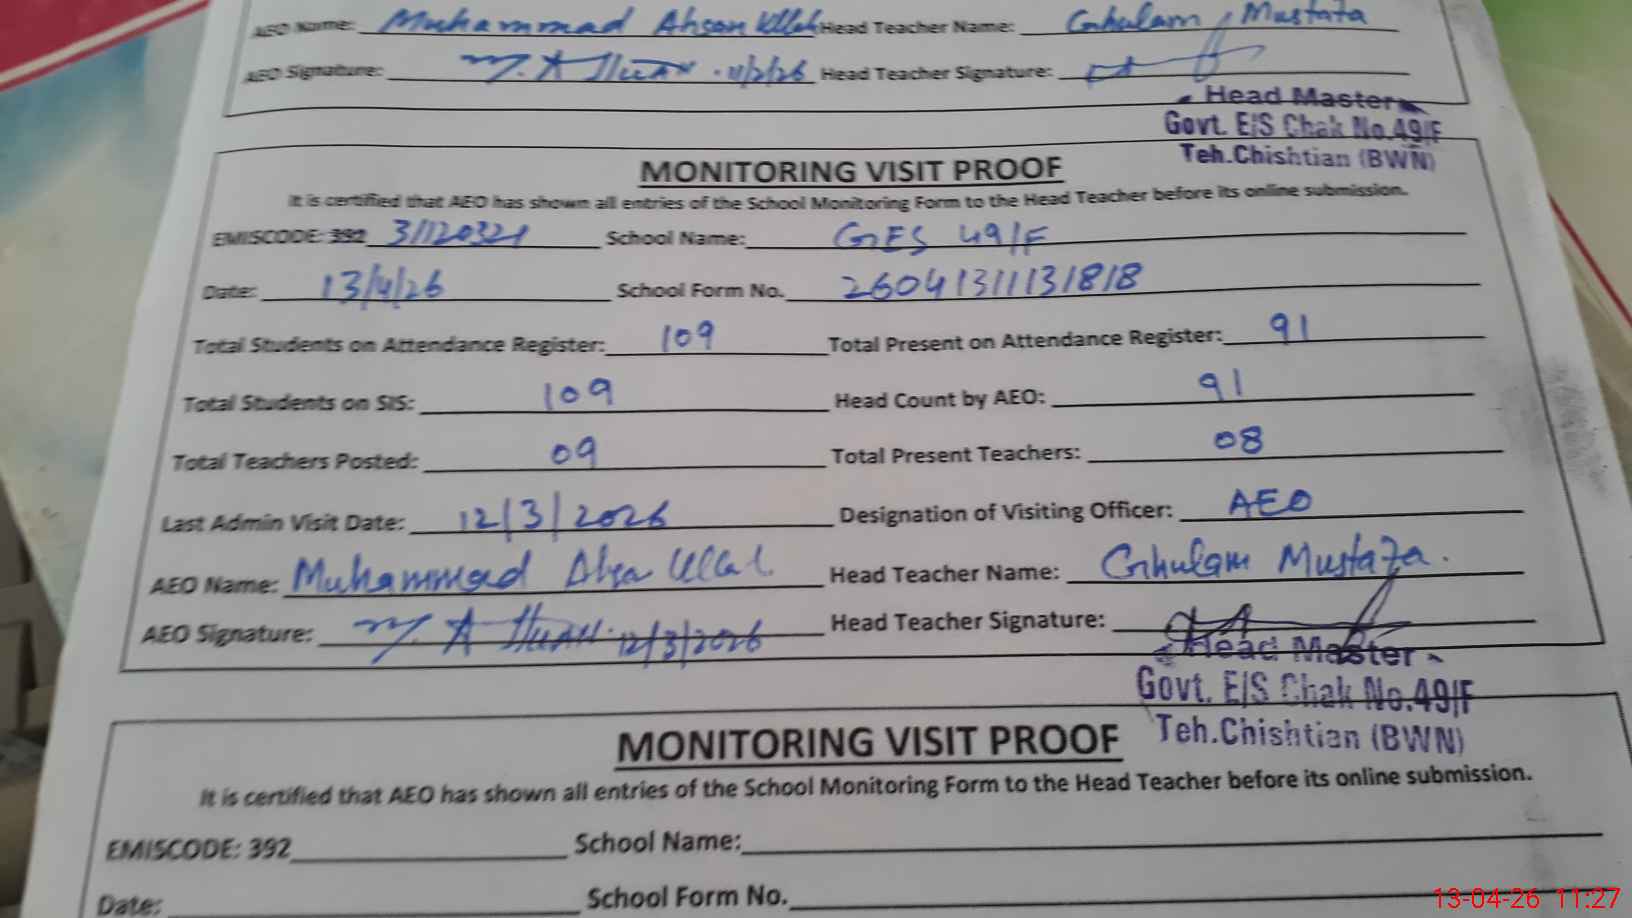 AEO Name: Muhammad Ahsan Ullah Head Teacher Name: Ghulam Mustafa
AEO Signature: 11/2/26 Head Teacher Signature:
Head Master
Govt. E/S Chak No.49/F
Teh.Chishtian (BWN)
MONITORING VISIT PROOF
It is certified that AEO has shown all entries of the School Monitoring Form to the Head Teacher before its online submission.
EMISCODE: 392 31120321 School Name: GES 49/F
Date: 13/4/26 School Form No. 26041311131818
Total Students on Attendance Register: 109 Total Present on Attendance Register: 91
Total Students on SIS: 109 Head Count by AEO: 91
Total Teachers Posted: 09 Total Present Teachers: 08
Last Admin Visit Date: 12/3/2026 Designation of Visiting Officer: AEO
AEO Name: Muhammad Ahsan Ullah Head Teacher Name: Ghulam Mustafa.
AEO Signature: 12/3/2026 Head Teacher Signature:
Head Master
Govt. E/S Chak No.49/F
Teh.Chishtian (BWN)
MONITORING VISIT PROOF
It is certified that AEO has shown all entries of the School Monitoring Form to the Head Teacher before its online submission.
EMISCODE: 392 School Name:
Date: School Form No.
13-04-26 11:27